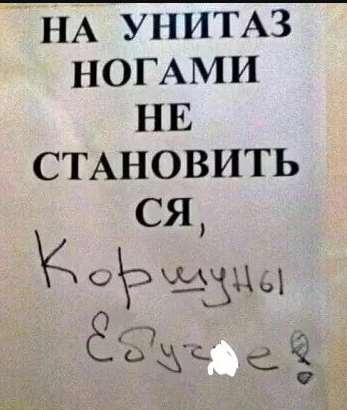 НА УНИТАЗ
НОГАМИ
НЕ
СТАНОВИТЬ
СЯ,
Коршуны